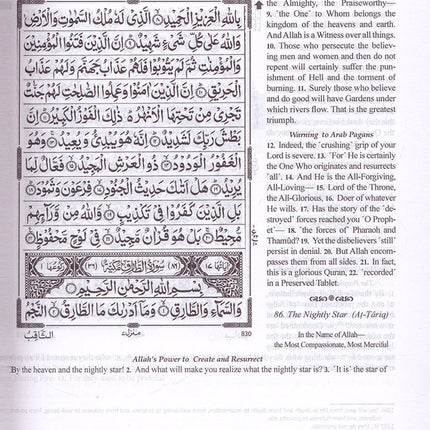 بِاللّٰهِ الْعَزِيْزِ الْحَمِيْدِ ۝ الَّذِىْ لَهٗ مُلْكُ السَّمٰوٰتِ وَالْاَرْضِ
وَاللّٰهُ عَلٰى كُلِّ شَىْءٍ شَهِيْدٌ ۝ اِنَّ الَّذِيْنَ فَتَنُوا الْمُؤْمِنِيْنَ
وَالْمُؤْمِنٰتِ ثُمَّ لَمْ يَتُوْبُوْا فَلَهُمْ عَذَابُ جَهَنَّمَ وَلَهُمْ عَذَابُ
الْحَرِيْقِ ۝ اِنَّ الَّذِيْنَ اٰمَنُوْا وَعَمِلُوا الصّٰلِحٰتِ لَهُمْ جَنّٰتٌ
تَجْرِىْ مِنْ تَحْتِهَا الْاَنْهٰرُ ذٰلِكَ الْفَوْزُ الْكَبِيْرُ ۝ اِنَّ
بَطْشَ رَبِّكَ لَشَدِيْدٌ ۝ اِنَّهٗ هُوَ يُبْدِئُ وَيُعِيْدُ ۝ وَهُوَ
الْغَفُوْرُ الْوَدُوْدُ ۝ ذُو الْعَرْشِ الْمَجِيْدُ ۝ فَعَّالٌ لِّمَا
يُرِيْدُ ۝ هَلْ اَتٰىكَ حَدِيْثُ الْجُنُوْدِ ۝ فِرْعَوْنَ وَثَمُوْدَ ۝
بَلِ الَّذِيْنَ كَفَرُوْا فِىْ تَكْذِيْبٍ ۝ وَّاللّٰهُ مِنْ وَّرَآئِهِمْ
مُّحِيْطٌ ۝ بَلْ هُوَ قُرْاٰنٌ مَّجِيْدٌ ۝ فِىْ لَوْحٍ مَّحْفُوْظٍ ۝
اٰيَاتُهَا ١٧ (٨٦) سُوْرَةُ الطَّارِقِ مَكِّيَّةٌ (٣٦) رُكُوْعُهَا ١
بِسْمِ اللّٰهِ الرَّحْمٰنِ الرَّحِيْمِ
وَالسَّمَآءِ وَالطَّارِقِ ۝ وَمَآ اَدْرٰىكَ مَا الطَّارِقُ ۝ النَّجْمُ
الثَّاقِبُ
منزل
830
the Almighty, the Praiseworthy—
9. ˹the One˺ to Whom belongs the
kingdom of the heavens and earth.
And Allah is a Witness over all things.
10. Those who persecute the believ-
ing men and women and then do not
repent will certainly suffer the pun-
ishment of Hell and the torment of
burning. 11. Surely those who believe
and do good will have Gardens under
which rivers flow. That is the greatest
triumph.
Warning to Arab Pagans
12. Indeed, the ˹crushing˺ grip of your
Lord is severe. 13. ˹For˺ He is certainly
the One Who originates and resurrects
˹all˺. 14. And He is the All-Forgiving,
All-Loving— 15. Lord of the Throne,
the All-Glorious, 16. Doer of whatever
He wills. 17. Has the story of the ˹de-
stroyed˺ forces reached you ˹O Proph-
et˺— 18. ˹the forces of˺ Pharaoh and
Thamûd? 19. Yet the disbelievers ˹still˺
persist in denial. 20. But Allah encom-
passes them from all sides. 21. In fact,
this is a glorious Quran, 22. ˹recorded˺
in a Preserved Tablet.
86. The Nightly Star (Aṭ-Ṭâriq)
In the Name of Allah—
the Most Compassionate, Most Merciful
Allah's Power to Create and Resurrect
By the heaven and the nightly star! 2. And what will make you realize what the nightly star is? 3. ˹It is˺ the star of